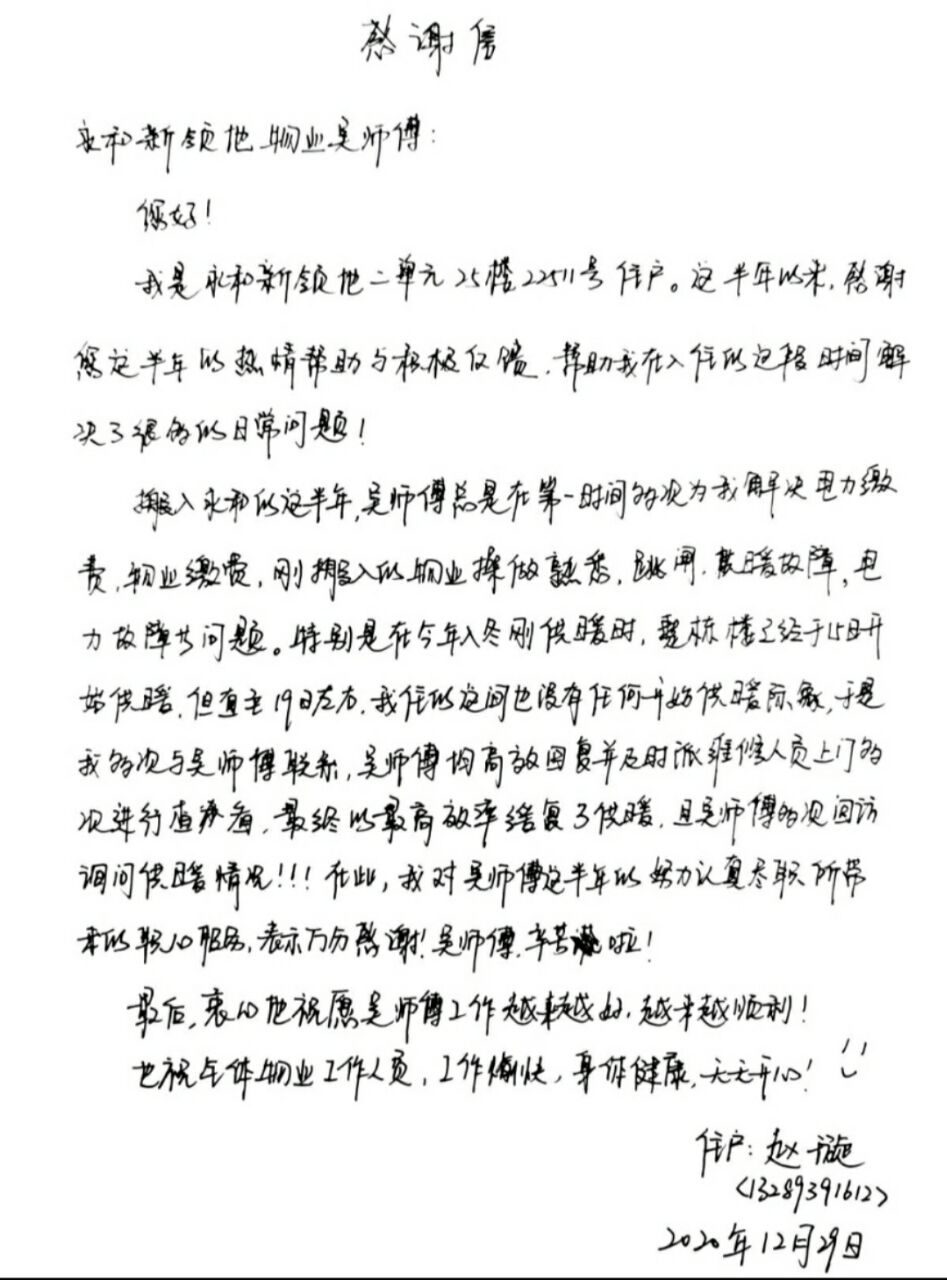 感谢信
永和新领地物业吴师傅：
您好！
我是永和新领地二单元25楼22511号住户。这半年以来，感谢
您这半年的热情帮助与积极反馈，帮助我在入住的这段时间解
决了很多的日常问题！
搬入永和的这半年，吴师傅总是在第一时间多次为我解决电力缴
费，物业缴费，刚搬入的物业操做熟悉，跳闸，供暖故障，电
力故障等问题。特别是在今年入冬刚供暖时，整栋楼已经于15日开
始供暖，但直至19日左右，我住的这间也没有任何开始供暖际象，于是
我多次与吴师傅联系，吴师傅均高效回复并及时派维修人员上门多
次进行查看，最终以最高效率修复了供暖，且吴师傅多次回访
询问供暖情况！！！在此，我对吴师傅这半年的努力认真尽职所带
来的暖心服务，表示万分感谢！吴师傅，辛苦啦！
最后，衷心地祝愿吴师傅工作越来越好，越来越顺利！
也祝全体物业工作人员，工作愉快，身体健康，天天开心！
住户：赵璇
<13289391612>
2020年12月29日